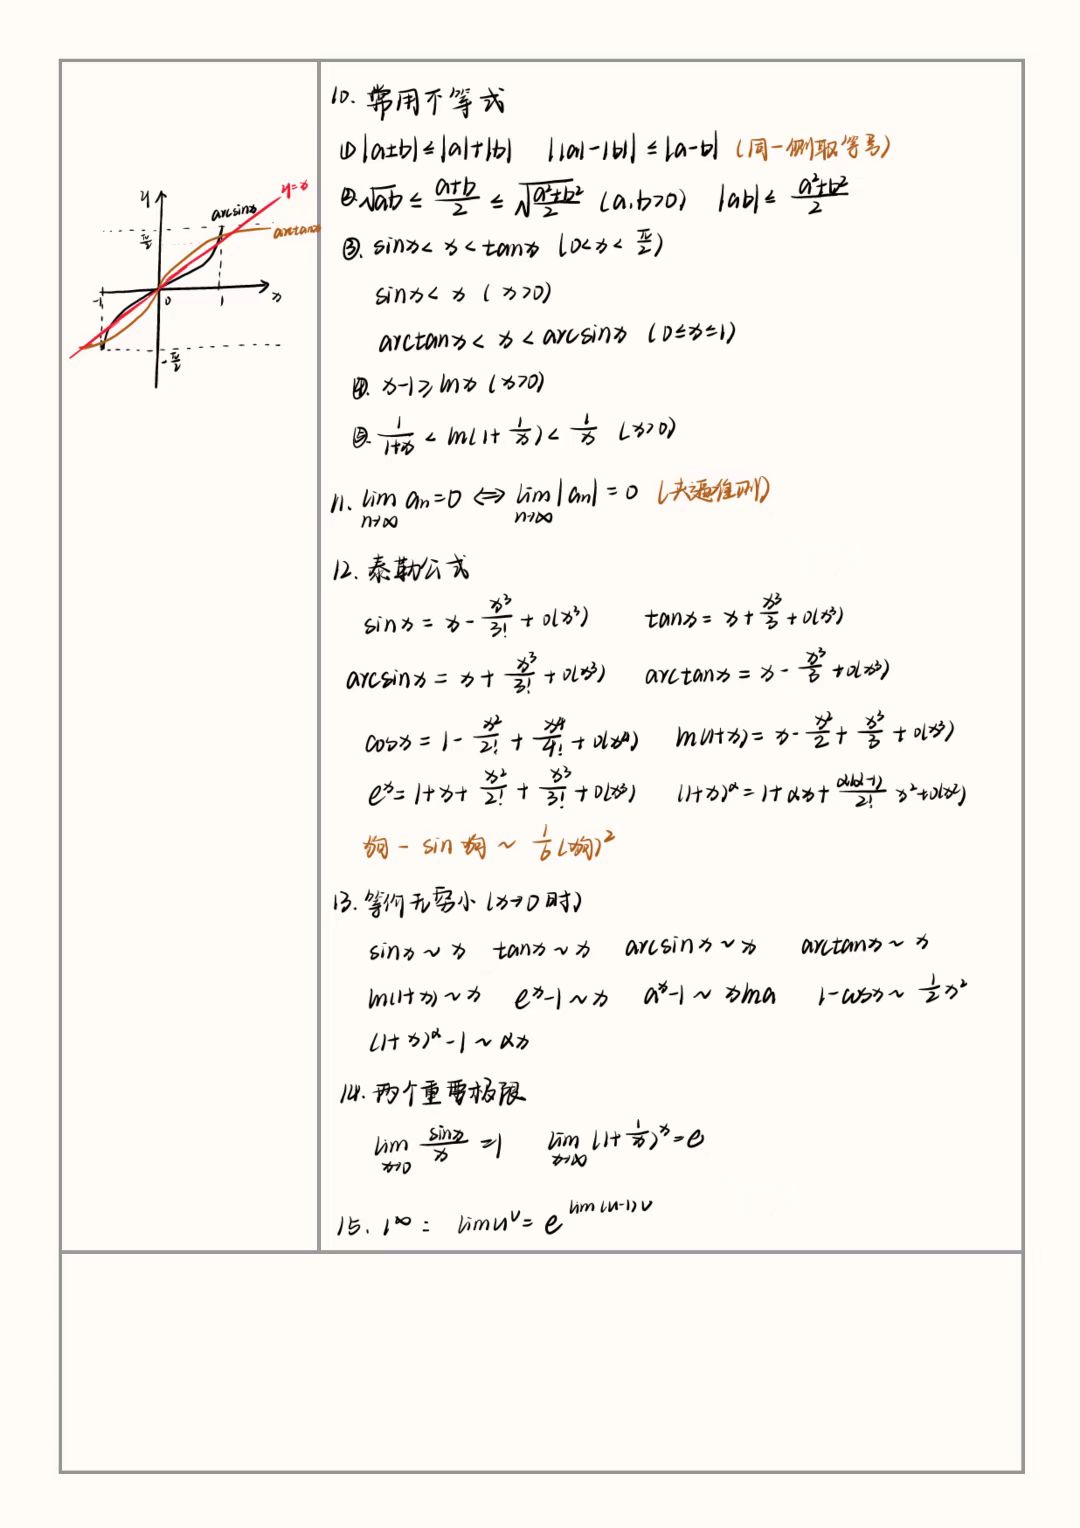 y
y=x
arcsinx
arctanx
π/2
-1
0
1
x
-π/2
10. 常用不等式
① |a±b| ≤ |a|+|b|  ||a|-|b|| ≤ |a-b| (同一侧取等号)
② √ab ≤ (a+b)/2 ≤ √((a²+b²)/2) (a,b>0)  |ab| ≤ (a²+b²)/2
③. sinx < x < tanx (0<x<π/2)
sinx < x (x>0)
arctanx < x < arcsinx (0≤x≤1)
④. x-1 ≥ lnx (x>0)
⑤. 1/(1+x) < ln(1+1/x) < 1/x (x>0)
11. lim_{n→∞} an=0 ⇔ lim_{n→∞} |an| = 0 (夹逼准则)
12. 泰勒公式
sinx = x - x³/3! + o(x³)  tanx = x + x³/3 + o(x³)
arcsinx = x + x³/3! + o(x³)  arctanx = x - x³/3 + o(x³)
cosx = 1 - x²/2! + x⁴/4! + o(x⁴)  ln(1+x) = x - x²/2 + x³/3 + o(x³)
eˣ = 1+x+ x²/2! + x³/3! + o(x³)  (1+x)^α = 1+αx+ α(α-1)/2! x²+o(x²)
狗 - sin 狗 ~ 1/6 (狗)²
13. 等价无穷小 (x→0时)
sinx ~ x  tanx ~ x  arcsinx ~ x  arctanx ~ x
ln(1+x) ~ x  eˣ-1 ~ x  aˣ-1 ~ xlna  1-cosx ~ 1/2 x²
(1+x)^α -1 ~ αx
14. 两个重要极限
lim_{x→0} sinx/x =1  lim_{x→∞} (1+1/x)ˣ = e
15. 1^∞: limu^v = e^{lim(u-1)v}